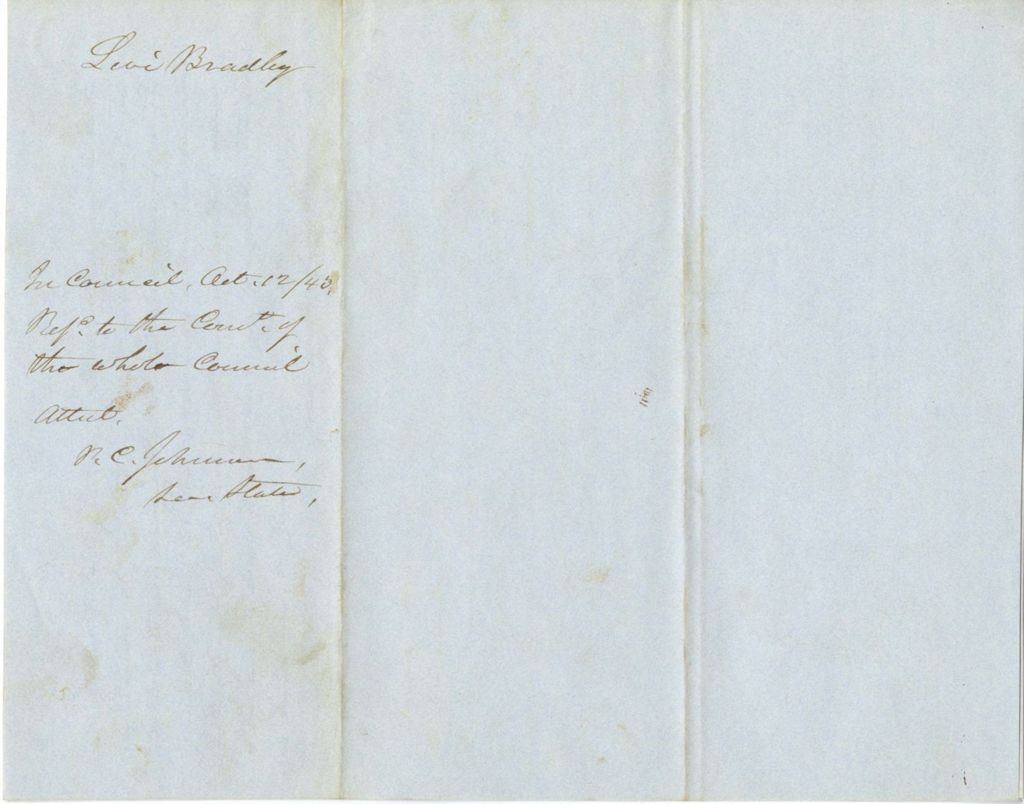 Levi Bradley
In Council, Oct. 12/43.
Refd. to the Comte. of
the whole Council
Attest.
P. C. Johnson,
Sec. State,